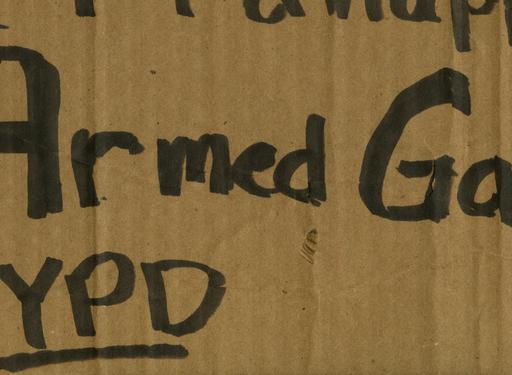 Armed Ga
YPD